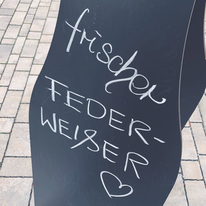 frischer
FEDER-
WEIßER
♡